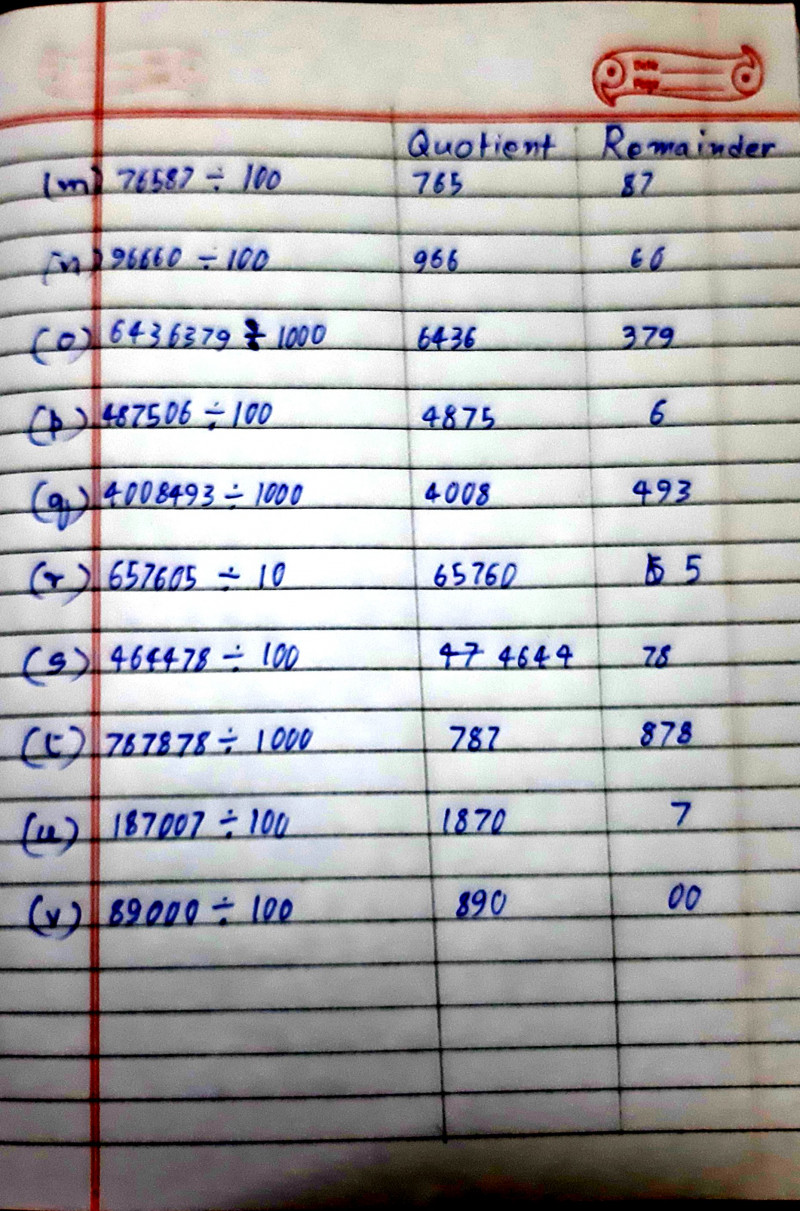 Date
Page
Quotient Remainder
(m) 76587 ÷ 100 765 87
(n) 96660 ÷ 100 966 60
(o) 6436379 ÷ 1000 6436 379
(p) 487506 ÷ 100 4875 6
(q) 4008493 ÷ 1000 4008 493
(r) 657605 ÷ 10 65760 5
(s) 464478 ÷ 100 47 4644 78
(t) 787878 ÷ 1000 787 878
(u) 187007 ÷ 100 1870 7
(v) 89000 ÷ 100 890 00